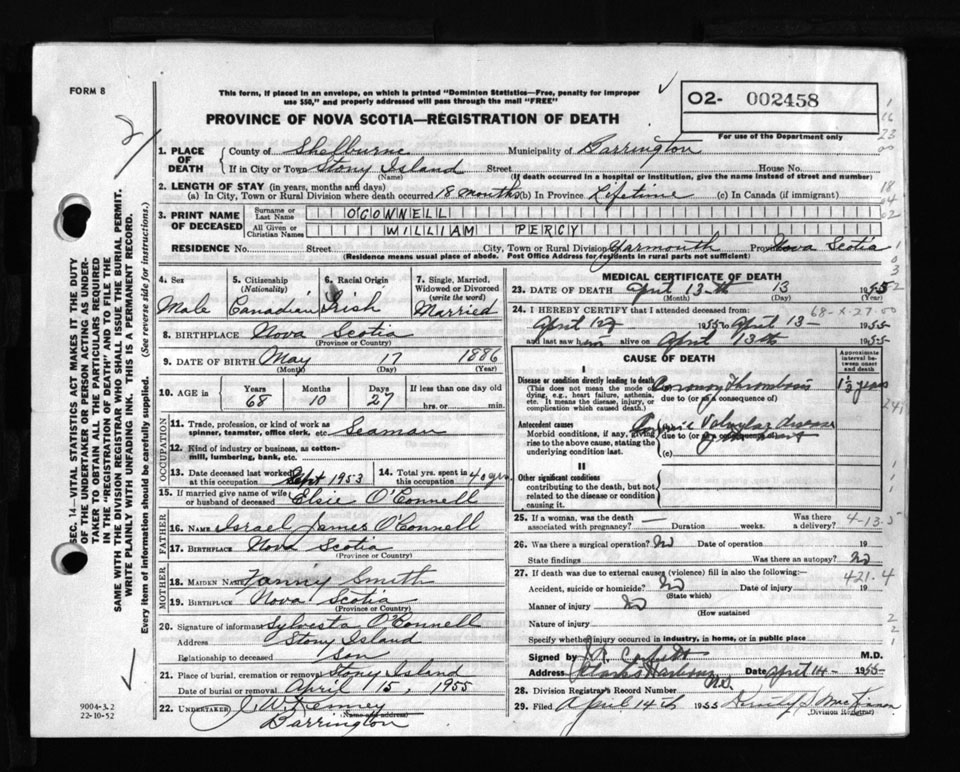 FORM 8
This form, if placed in an envelope, on which is printed "Dominion Statistics—Free, penalty for improper
use $50," and properly addressed will pass through the mail "FREE"
PROVINCE OF NOVA SCOTIA—REGISTRATION OF DEATH
O2- 002458
For use of the Department only
1. PLACE OF DEATH County of Shelburne Municipality of Barrington
If in City or Town Stony Island Street House No.
(Name) (If death occurred in a hospital or institution, give the name instead of street and number)
2. LENGTH OF STAY (in years, months and days)
(a) In City, Town or Rural Division where death occurred 18 months (b) In Province Lifetime (c) In Canada (if immigrant)
3. PRINT NAME OF DECEASED Surname or Last Name O'CONNELL
All Given or Christian Names WILLIAM PERCY
RESIDENCE No. Street City, Town or Rural Division Yarmouth Nova Scotia
(Residence means usual place of abode. Post Office Address for residents in rural parts not sufficient)
4. Sex Male
5. Citizenship (Nationality) Canadian
6. Racial Origin Irish
7. Single, Married, Widowed or Divorced (write the word) Married
8. BIRTHPLACE Nova Scotia
(Province or Country)
9. DATE OF BIRTH May 17 1886
(Month) (Day) (Year)
10. AGE is Years 68 Months 10 Days 27 If less than one day old hrs. or min.
OCCUPATION
11. Trade, profession, or kind of work as spinner, teamster, office clerk, etc. Seaman
12. Kind of industry or business, as cotton-mill, lumbering, bank, etc.
13. Date deceased last worked at this occupation Sept 1953
14. Total yrs. spent in this occupation 40 yrs.
15. If married give name of wife or husband of deceased Elsie O'Connell
FATHER
16. NAME Israel James O'Connell
17. BIRTHPLACE Nova Scotia
(Province or Country)
MOTHER
18. MAIDEN NAME Fanny Smith
19. BIRTHPLACE Nova Scotia
(Province or Country)
20. Signature of informant Sylvesta O'Connell
Address Stony Island
Relationship to deceased Son
21. Place of burial, cremation or removal Stony Island
Date of burial or removal April 15, 1955
22. UNDERTAKER J. W. Kenney
(Name and address)
Barrington
MEDICAL CERTIFICATE OF DEATH
23. DATE OF DEATH April 13th 13 1955
(Month) (Day) (Year)
24. I HEREBY CERTIFY that I attended deceased from: 68-X-27-00
April 1955 to April 13- 1955
and last saw him alive on April 13th 1955
CAUSE OF DEATH
Approximate interval between onset and death
I
Disease or condition directly leading to death Coronary Thrombosis 1½ years
(This does not mean the mode of dying, e.g., heart failure, asthenia, etc. It means the disease, injury, or complication which caused death.)
due to (or as a consequence of)
Antecedent causes Chronic Valvular disease
Morbid conditions, if any, giving rise to the above cause, stating the underlying condition last.
due to (or as a consequence of)
(c)
II
Other significant conditions
contributing to the death, but not related to the disease or condition causing it.
25. If a woman, was the death associated with pregnancy? — Duration weeks. Was there a delivery?
4-13-5
26. Was there a surgical operation? No Date of operation 19
State findings Was there an autopsy? No
27. If death was due to external causes (violence) fill in also the following:—
421.4
Accident, suicide or homicide? No Date of injury 19
(State which)
Manner of injury No
(How sustained
Nature of injury
Specify whether injury occurred in industry, in home, or in public place
Signed by Corbett M.D.
Address Clarks Harbour N.S. Date April 14- 1955
28. Division Registrar's Record Number
29. Filed April 14th 1955
(Division Registrar)
SEC. 14.—VITAL STATISTICS ACT MAKES IT THE DUTY
OF THE UNDERTAKER OR PERSON ACTING AS UNDER-
TAKER TO OBTAIN ALL THE PARTICULARS REQUIRED
IN THE "REGISTRATION OF DEATH" AND TO FILE THE
SAME WITH THE DIVISION REGISTRAR WHO SHALL ISSUE THE BURIAL PERMIT.
WRITE PLAINLY WITH UNFADING INK. THIS IS A PERMANENT RECORD.
Every item of information should be carefully supplied. (See reverse side for instructions.)
9004-3.2
22-10-52